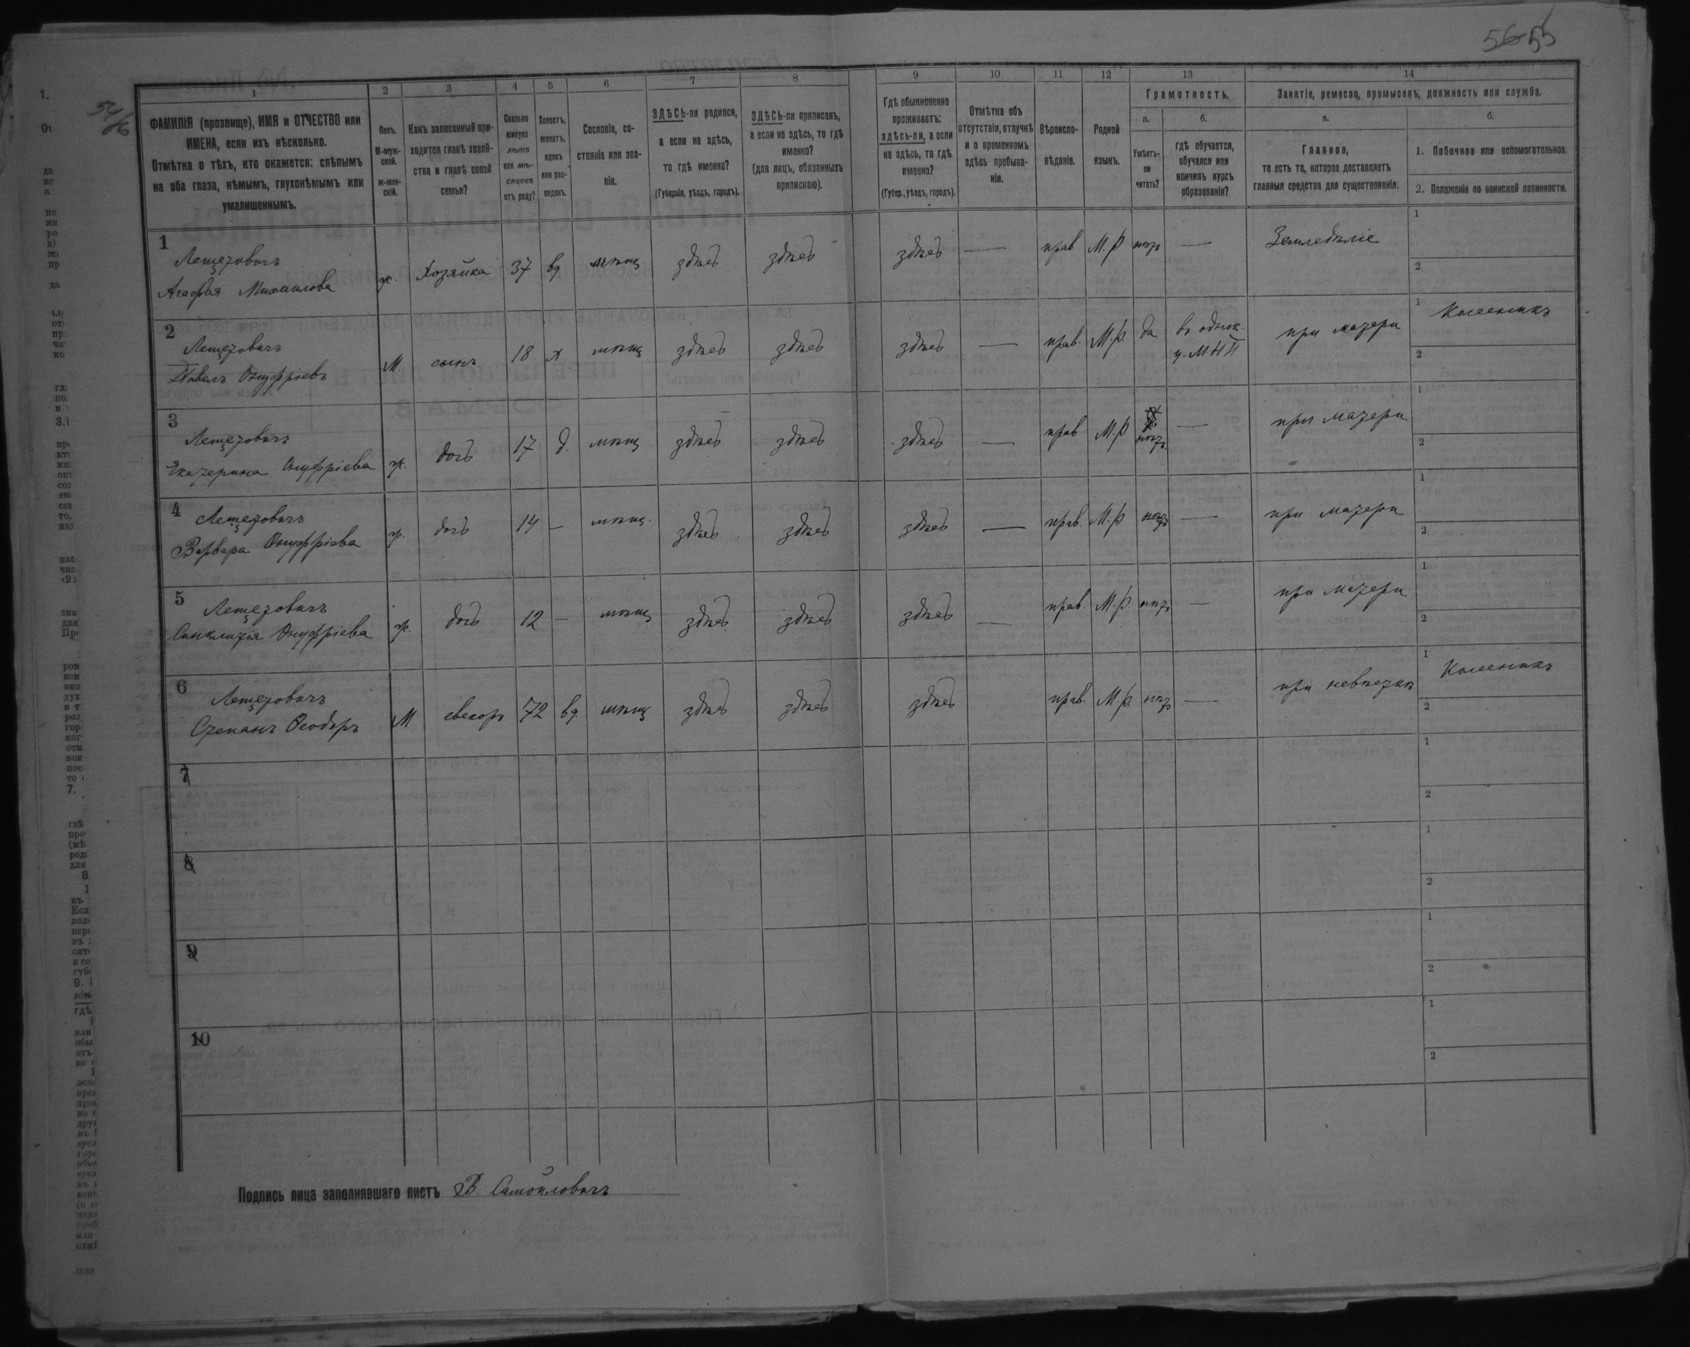 56 55
54/6
1
2
3
4
5
6
7
8
9
10
11
12
13
14
ФАМИЛІЯ (прозвище), ИМЯ и ОТЧЕСТВО или
ИМЕНА, если ихъ нѣсколько.
Отмѣтка о тѣхъ, кто окажется: слѣпымъ
на оба глаза, нѣмымъ, глухонѣмымъ или
умалишеннымъ.
Полъ.
М-муж-
ской.
Ж-жен-
скій.
Какъ записанный при-
ходится главѣ хозяй-
ства и главѣ своей
семьи?
Сколько
минуло
лѣтъ
или мѣ-
сяцевъ
отъ роду?
Холостъ,
женатъ,
вдовъ
или раз-
веденъ.
Сословіе, со-
стояніе или зва-
ніе.
ЗДѢСЬ-ли родился,
а если не здѣсь,
то гдѣ именно?
(Губернія, уѣздъ, городъ).
ЗДѢСЬ-ли приписанъ,
а если не здѣсь, то гдѣ
именно?
(для лицъ, обязанныхъ
припискою).
Гдѣ обыкновенно
проживаетъ:
здѣсь-ли, а если
не здѣсь, то гдѣ
именно?
(Губер., уѣздъ, городъ).
Отмѣтка объ
отсутствіи, отлучкѣ
и о временномъ
здѣсь пребыва-
ніи.
Вѣроиспо-
вѣданіе.
Родной
языкъ.
Грамотность.
а.
Умѣетъ-
ли
читать?
б.
гдѣ обучается,
обучался или
кончилъ курсъ
образованія?
Занятіе, ремесло, промыселъ, должность или служба.
а.
Главное,
то есть то, которое доставляетъ
главныя средства для существованія.
б.
1. Побочное или вспомогательное.
2. Положеніе по воинской повинности.
1
Агафья Михаилова
ж. Хозяйка 37 вд. мѣщ здѣсь здѣсь здѣсь — прав М.р нѣтъ — Земледѣліе
1
2
2
Павелъ Онуфріевъ
М. сынъ 18 х мѣщ здѣсь здѣсь здѣсь — прав. М.р. да въ однок.
у. МНП
при матери
1
Колесникъ
2
3
Екатерина Онуфріева
ж. дочь 17 д. мѣщ здѣсь здѣсь здѣсь — прав М.р нѣтъ — при матери
1
2
4
Варвара Онуфріева
ж. дочь 14 — мѣщ. здѣсь здѣсь здѣсь — прав. М.р нѣтъ — при матери
1
2
5
Синклитія Онуфріева
ж. дочь 12 — мѣщ здѣсь здѣсь здѣсь — прав. М.р. нѣтъ — при матери
1
2
6
Степанъ Ѳеодоръ
М свекоръ 72 вд. мѣщ здѣсь здѣсь здѣсь прав М.р. нѣтъ — при невѣстки
1
Колесникъ
2
7
1
2
8
1
2
9
1
2
10
1
2
Подпись лица заполнявшаго листъ В. Самойловичъ